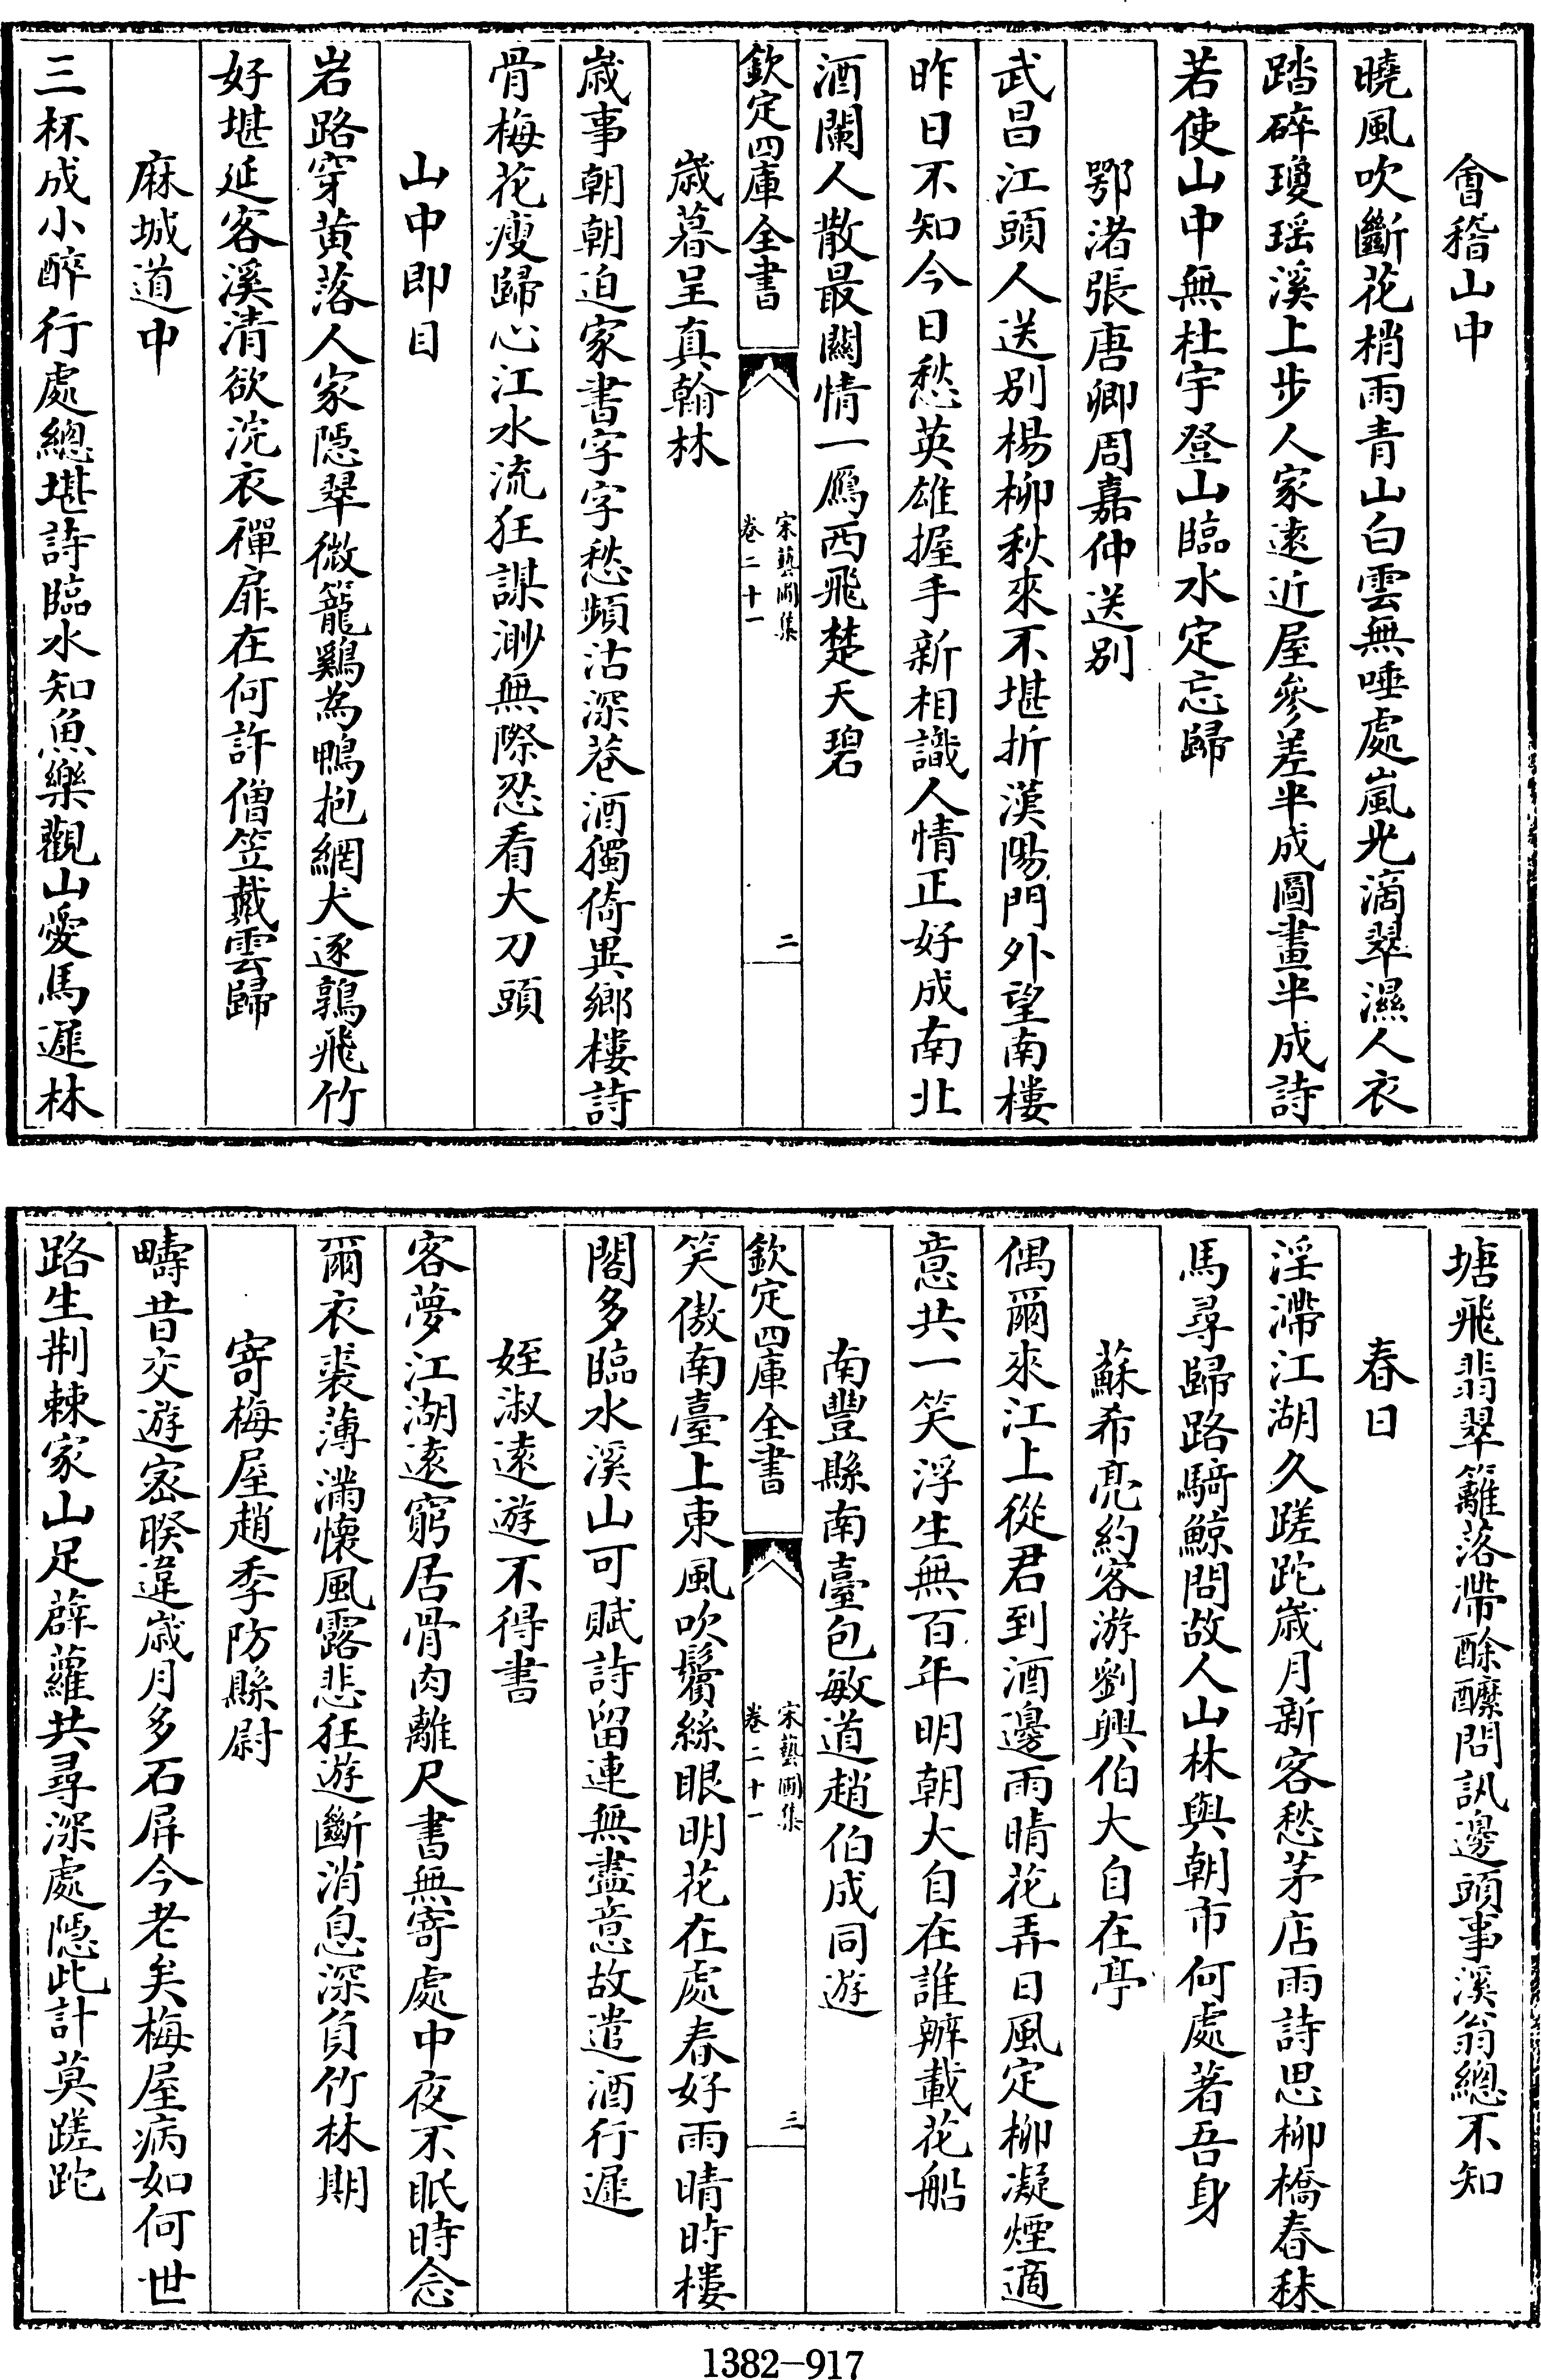 會稽山中
曉風吹斷花梢雨青山白雲無唾處嵐光滴翠濕人衣
踏碎瓊瑤溪上步人家遠近屋參差半成圖畫半成詩
若使山中無杜宇登山臨水定忘歸
鄂渚張唐卿周嘉仲送别
武昌江頭人送别楊柳秋來不堪折漢陽門外望南樓
昨日不知今日愁英雄握手新相識人情正好成南北
酒闌人散最關情一鴈西飛楚天碧
欽定四庫全書
宋藝圃集
卷二十一
二
歳暮呈真翰林
歳事朝朝迫家書字字愁頻沽深巷酒獨倚異鄉樓詩
骨梅花瘦歸心江水流狂謀渺無際忍看大刀頭
山中即目
岩路穿黄落人家隠翠微籠鷄為鴨抱網犬逐鶉飛竹
好堪延客溪清欲浣衣禪扉在何許僧笠戴雲歸
麻城道中
三杯成小醉行處總堪詩臨水知魚樂觀山愛馬遲林
塘飛翡翠籬落帶酴醿問訊邊頭事溪翁總不知
春日
淫滯江湖久蹉跎歳月新客愁茅店雨詩思柳橋春秣
馬尋歸路騎鯨問故人山林與朝市何處著吾身
蘇希亮約客游劉興伯大自在亭
偶爾來江上從君到酒邊雨晴花弄日風定柳凝煙適
意共一笑浮生無百年明朝大自在誰辦載花船
南豐縣南臺包敏道趙伯成同遊
欽定四庫全書
宋藝圃集
卷二十一
三
笑傲南臺上東風吹鬢絲眼明花在處春好雨晴時樓
閣多臨水溪山可賦詩留連無盡意故遣酒行遲
姪淑遠遊不得書
客夢江湖遠窮居骨肉離尺書無寄處中夜不眠時念
爾衣裘薄滿懷風露悲狂遊斷消息深負竹林期
寄梅屋趙季防縣尉
疇昔交遊密暌違歳月多石屏今老矣梅屋病如何世
路生荆棘家山足薜蘿共尋深處隠此計莫蹉跎
1382-917